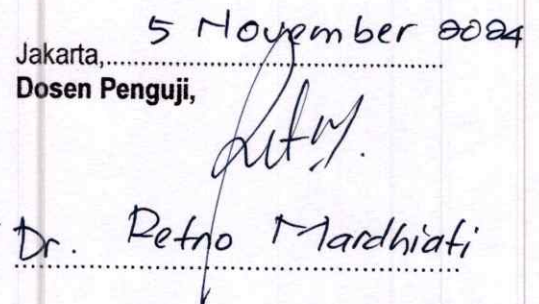 Jakarta, 5 November 2024
Dosen Penguji,
Dr. Retno Mardhiati